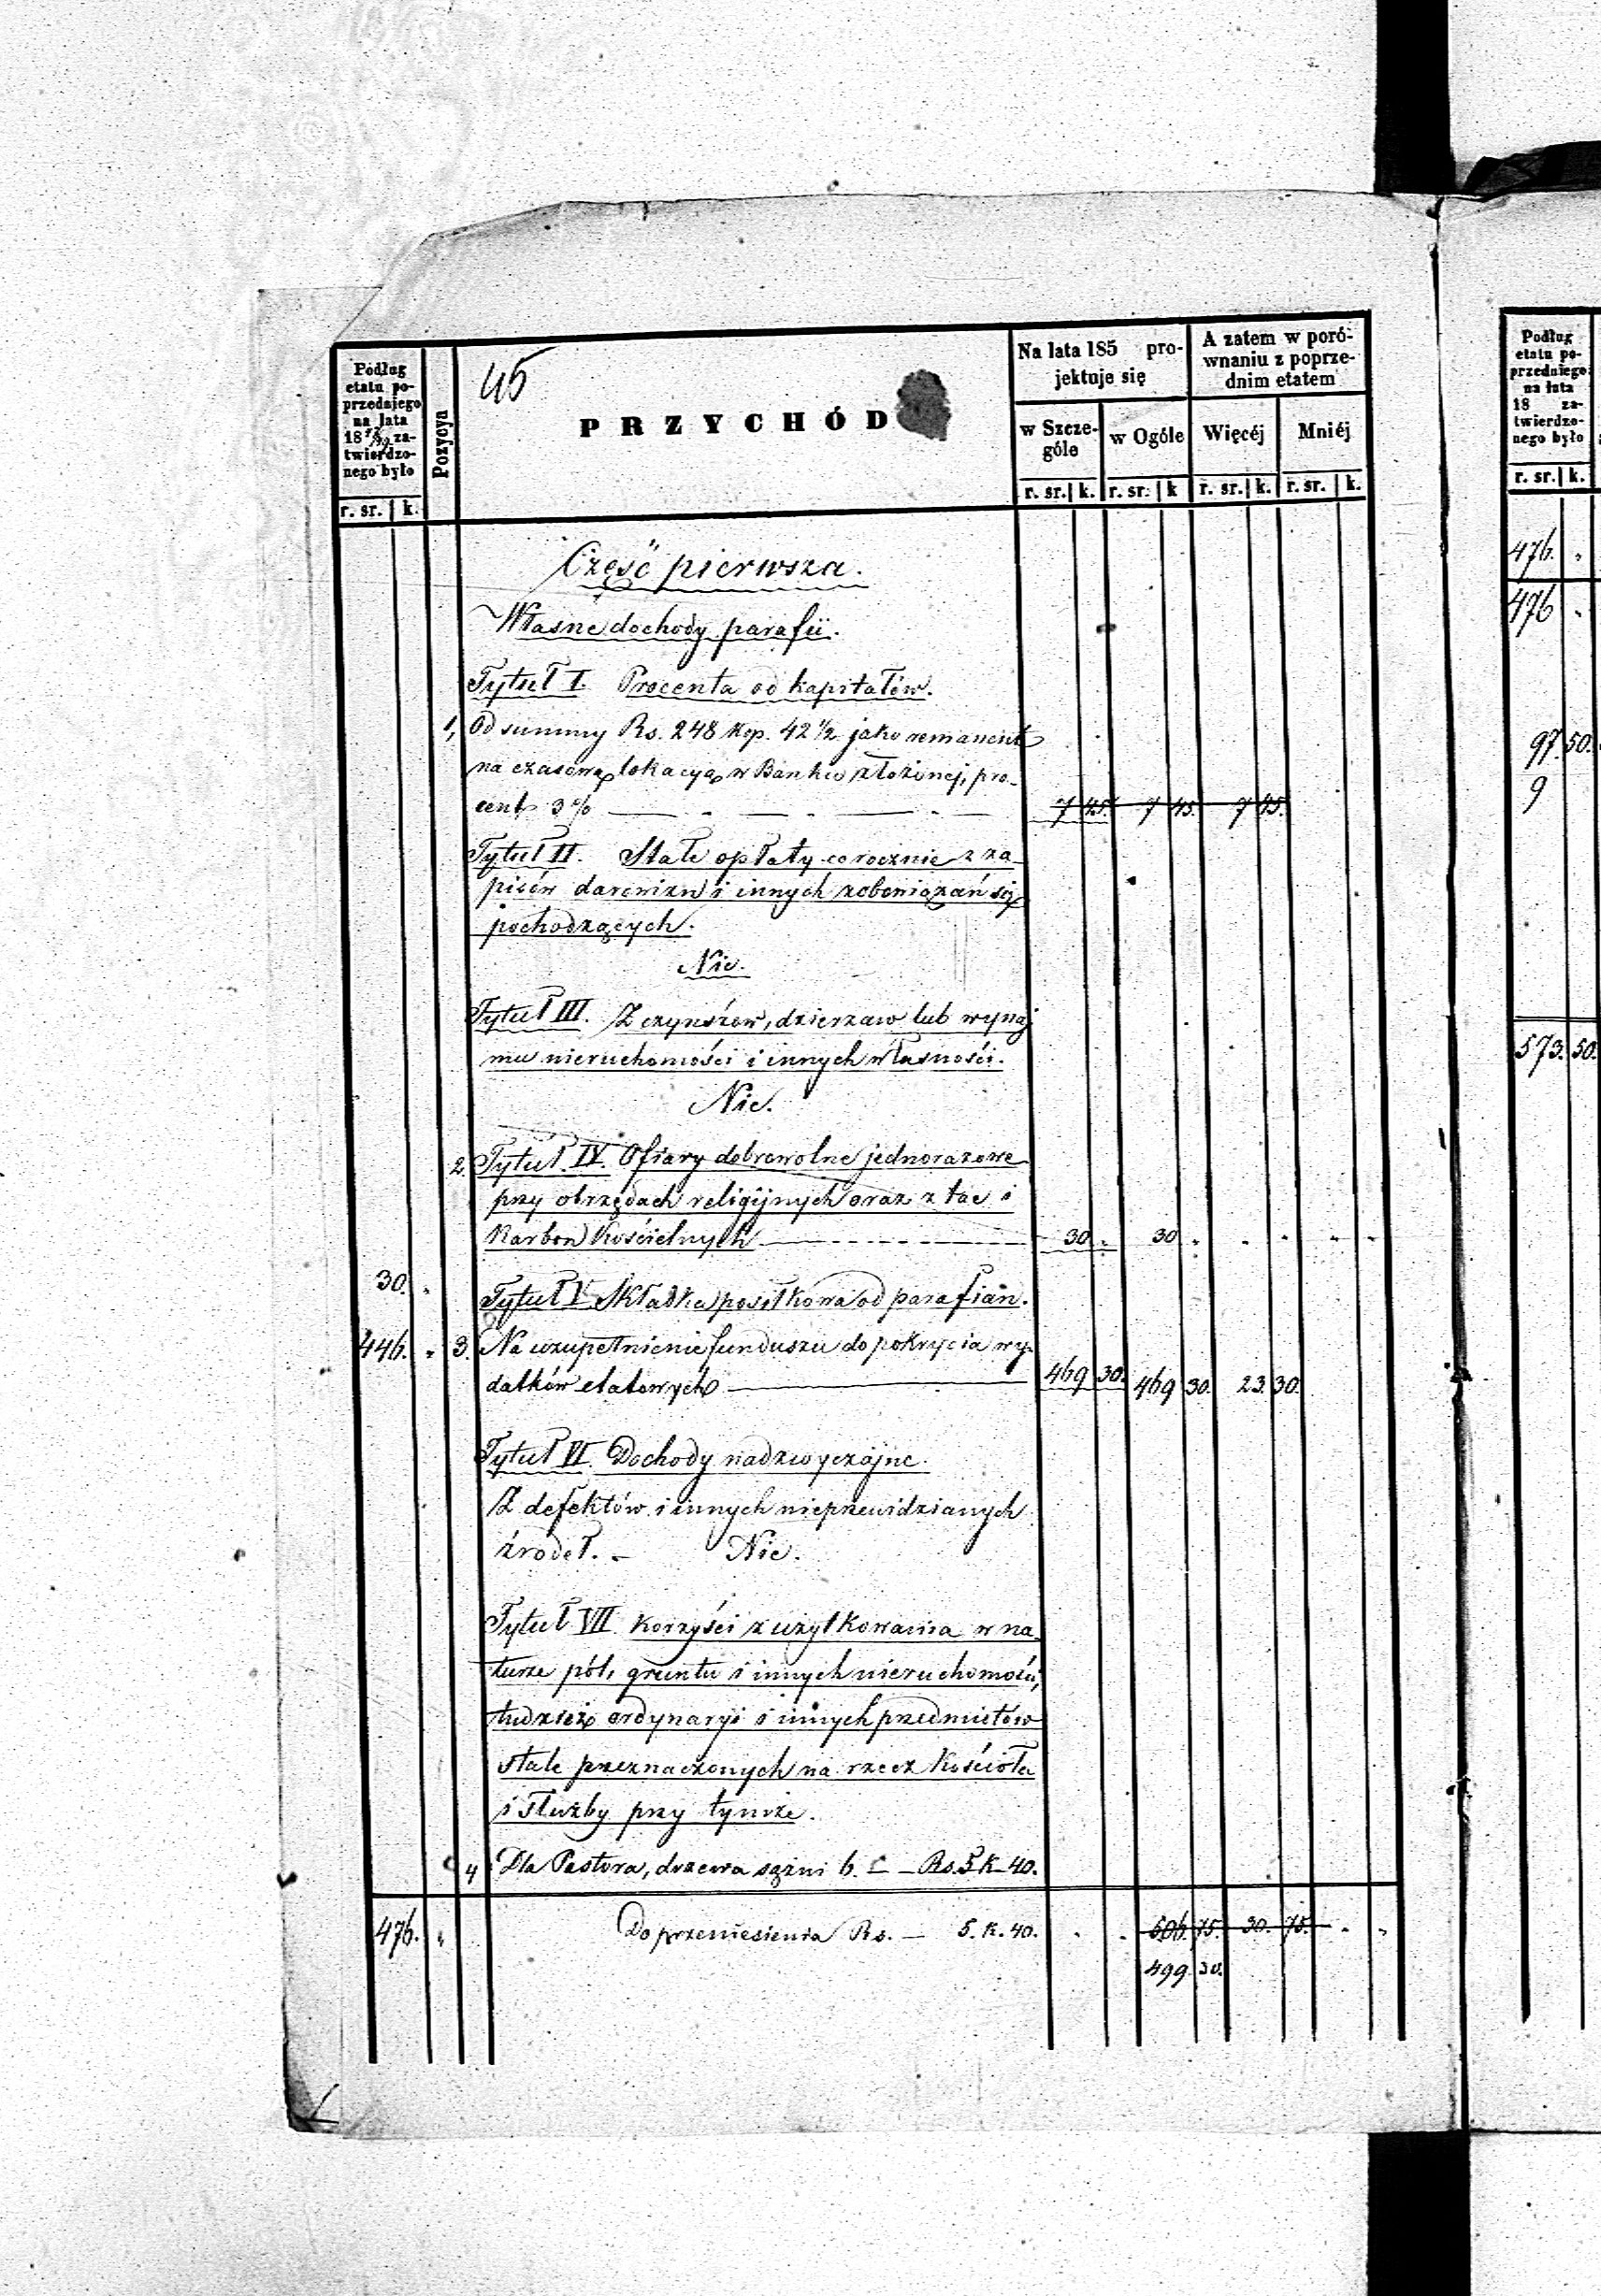 45
Podług
etatu po-
przedniego
na lata
18 za-
twierdzo-
nego było
r. sr. k.
Pozycya
PRZYCHÓD
Na lata 185 pro-
jektuje się
w Szcze-
góle
w Ogóle
r. sr. k. r. sr. k
A zatem w poró-
wnaniu z poprze-
dnim etatem
Więcéj Mniéj
r. sr. k. r. sr. k.
Część pierwsza.
Własne dochody parafii.
Tytuł I. Procenta od kapitałów.
1, Od summy Rs. 248 kop. 42 1/2 jako remanent
na czasową lokacyą w Banku złożonej, pro-
cent 3% 7 45. 7 45. 7 45.
Tytuł II. Stałe opłaty corocznie z za-
pisów darowizn i innych zobowiązań się
pochodzących.
Nic.
Tytuł III. Z czynszów, dzierzaw lub wynaj
mu nieruchomości i innych własności.
Nic.
2. Tytuł IV. Ofiary dobrowolne jednorazowe
przy obrzędach religijnych oraz z tac i
Karbon Kościelnych 30 " 30 " " " " "
30. "
Tytuł V. Składka posiłkowa od parafian.
446. " 3. Na uzupełnienie funduszu do pokrycia wy-
datków etatowych 469 30. 469 30. 23. 30.
Tytuł VI. Dochody nadzwyczajne.
Z defektów i innych nieprzewidzianych
źrodeł. – Nic.
Tytuł VII. Korzyści z użytkowania w na-
turze pól, gruntu i innych nieruchomości,
tudzież ordynaryi i innych przedmiotów
stale przeznaczonych na rzecz Kościoła
i służby przy tymże.
4 Dla Pastora, drzewa sążni 6. – Rs. 5 k. 40.
476. " Do przeniesienia Rs. – 5. k. 40. " " 506. 75. 30. 75. " "
499 30.
Podług
etatu po-
przedniego
na lata
18 za-
twierdzo-
nego było
r. sr. k.
476. "
476 "
97. 50.
9
573. 50.